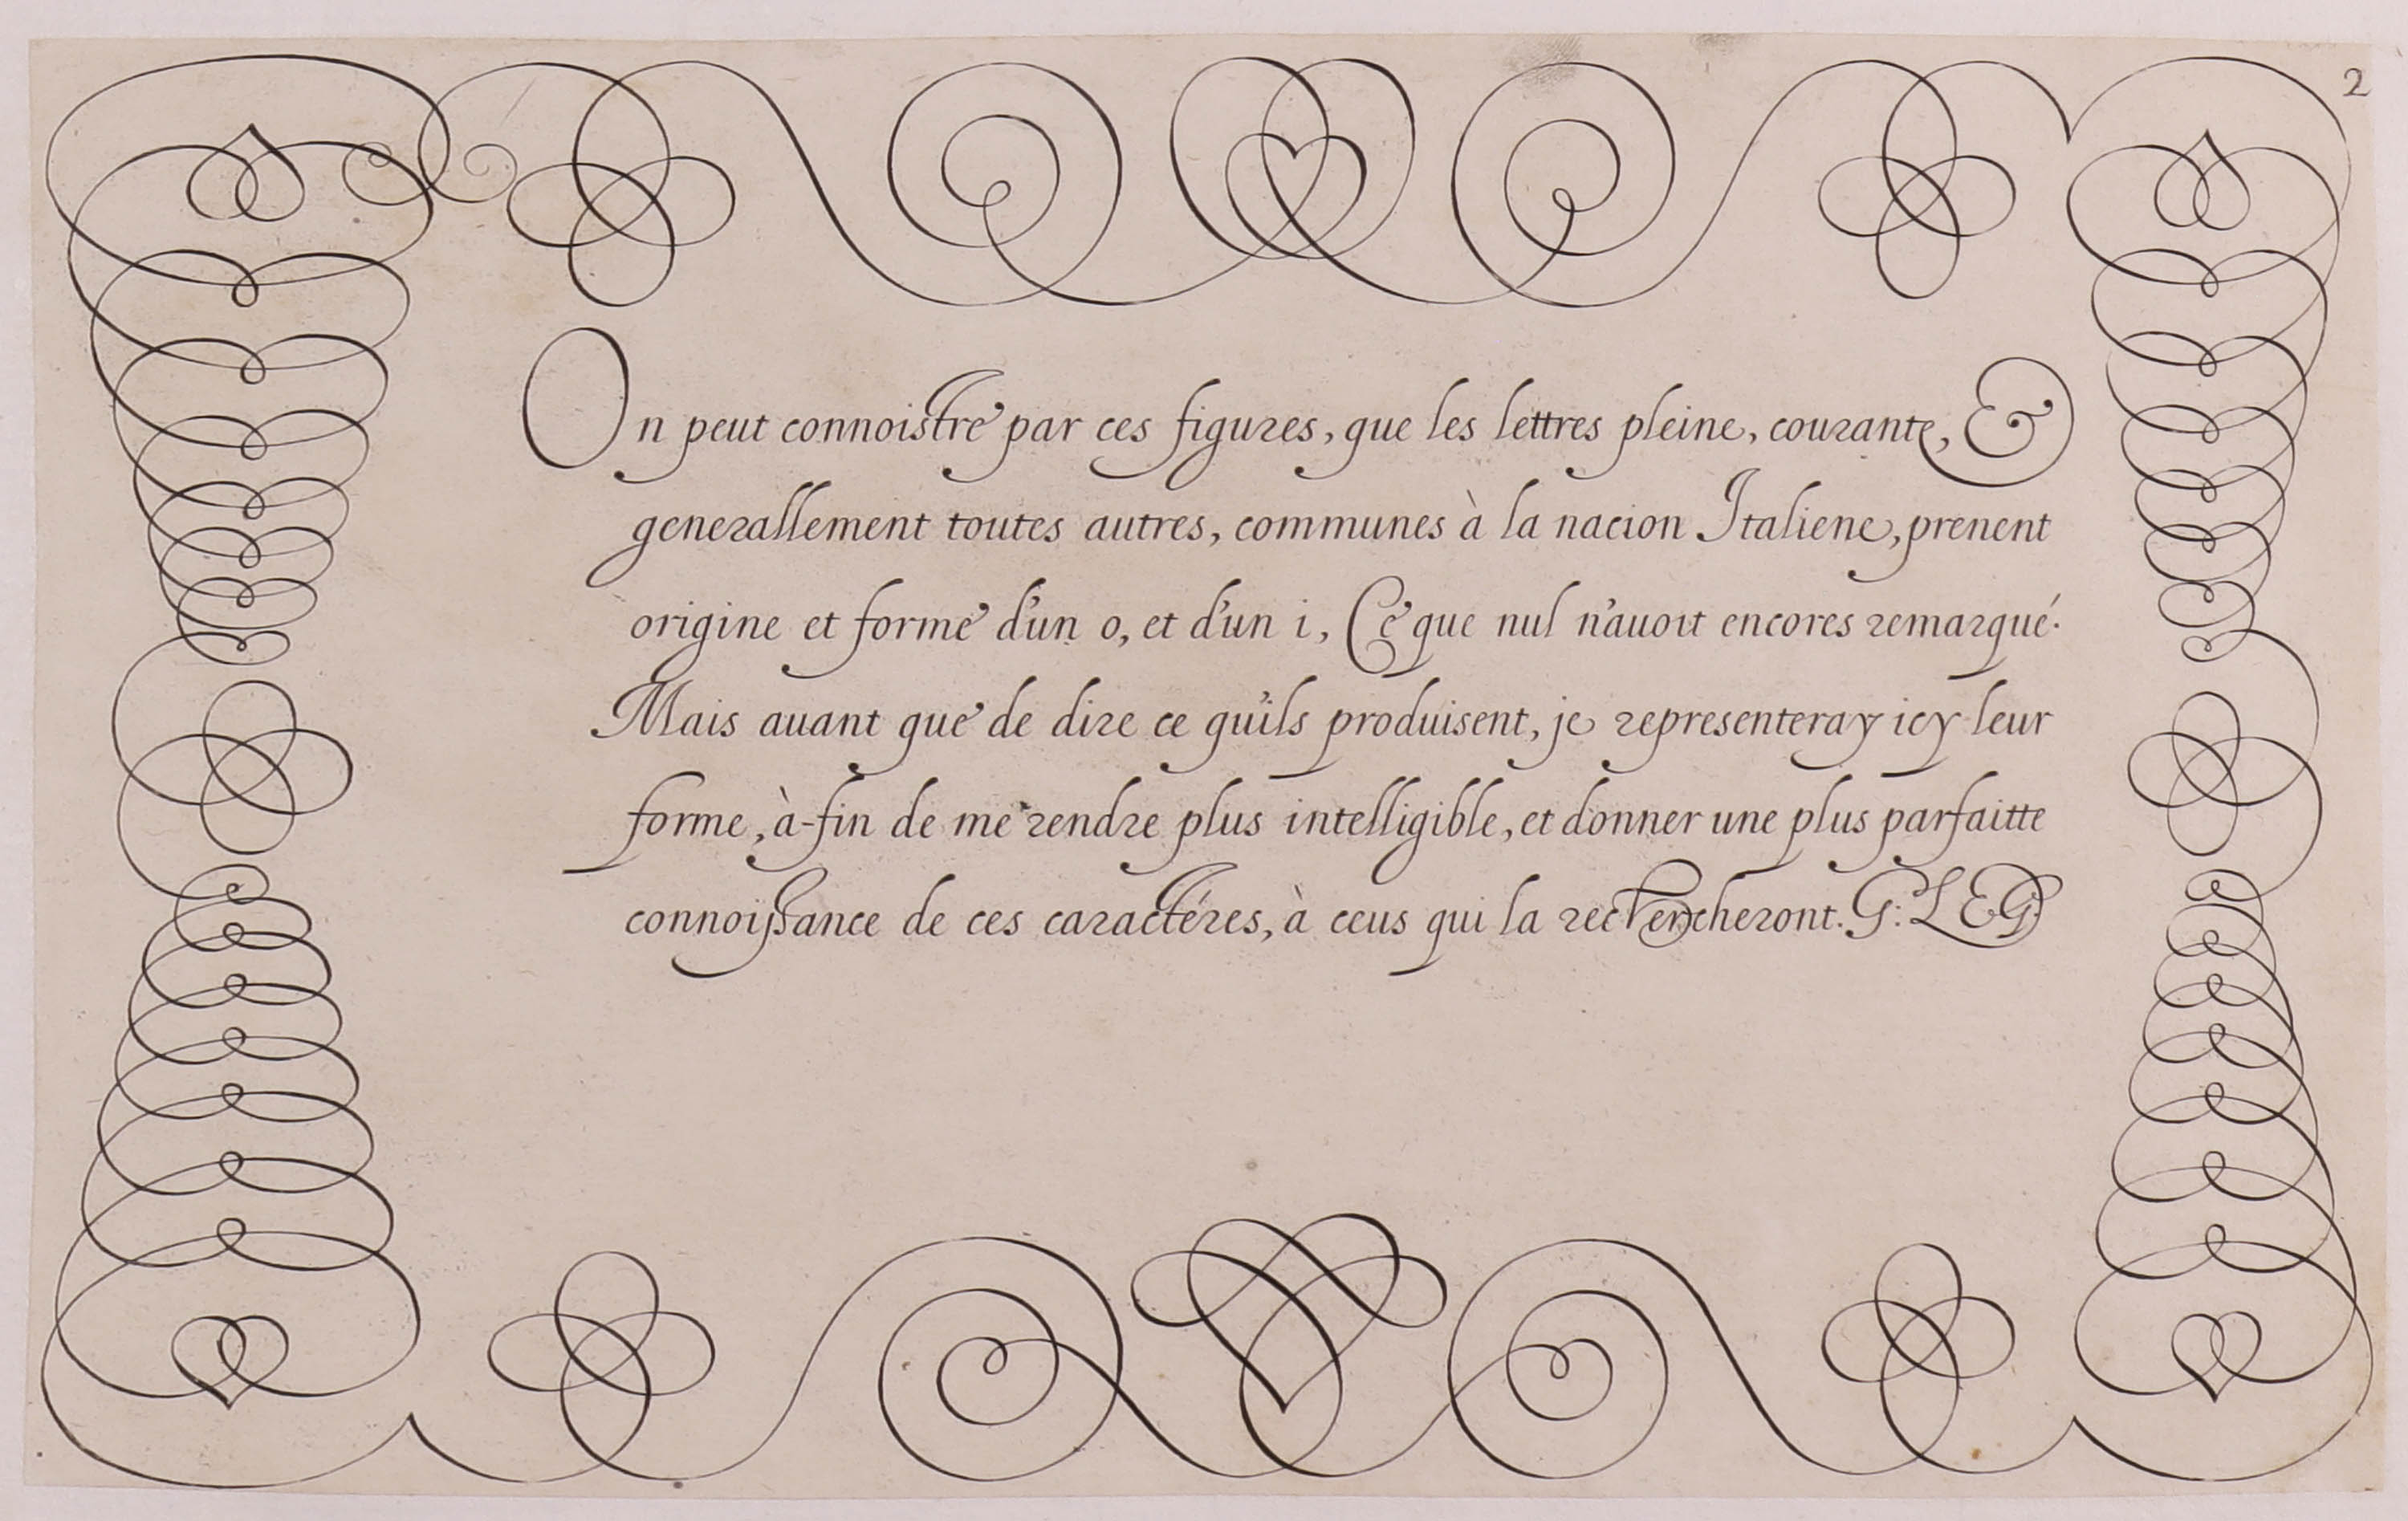 2
On peut connoistre par ces figures, que les lettres pleine, courante, &
generallement toutes autres, communes à la nacion Italiene, prenent
origine et forme d'un o, et d'un i, Ce que nul n'auoit encores remarqué.
Mais auant que de dire ce qu'ils produisent, je representeray icy leur
forme, à-fin de me rendre plus intelligible, et donner une plus parfaitte
connoissance de ces caractéres, à ceus qui la rechercheront. G: L E G